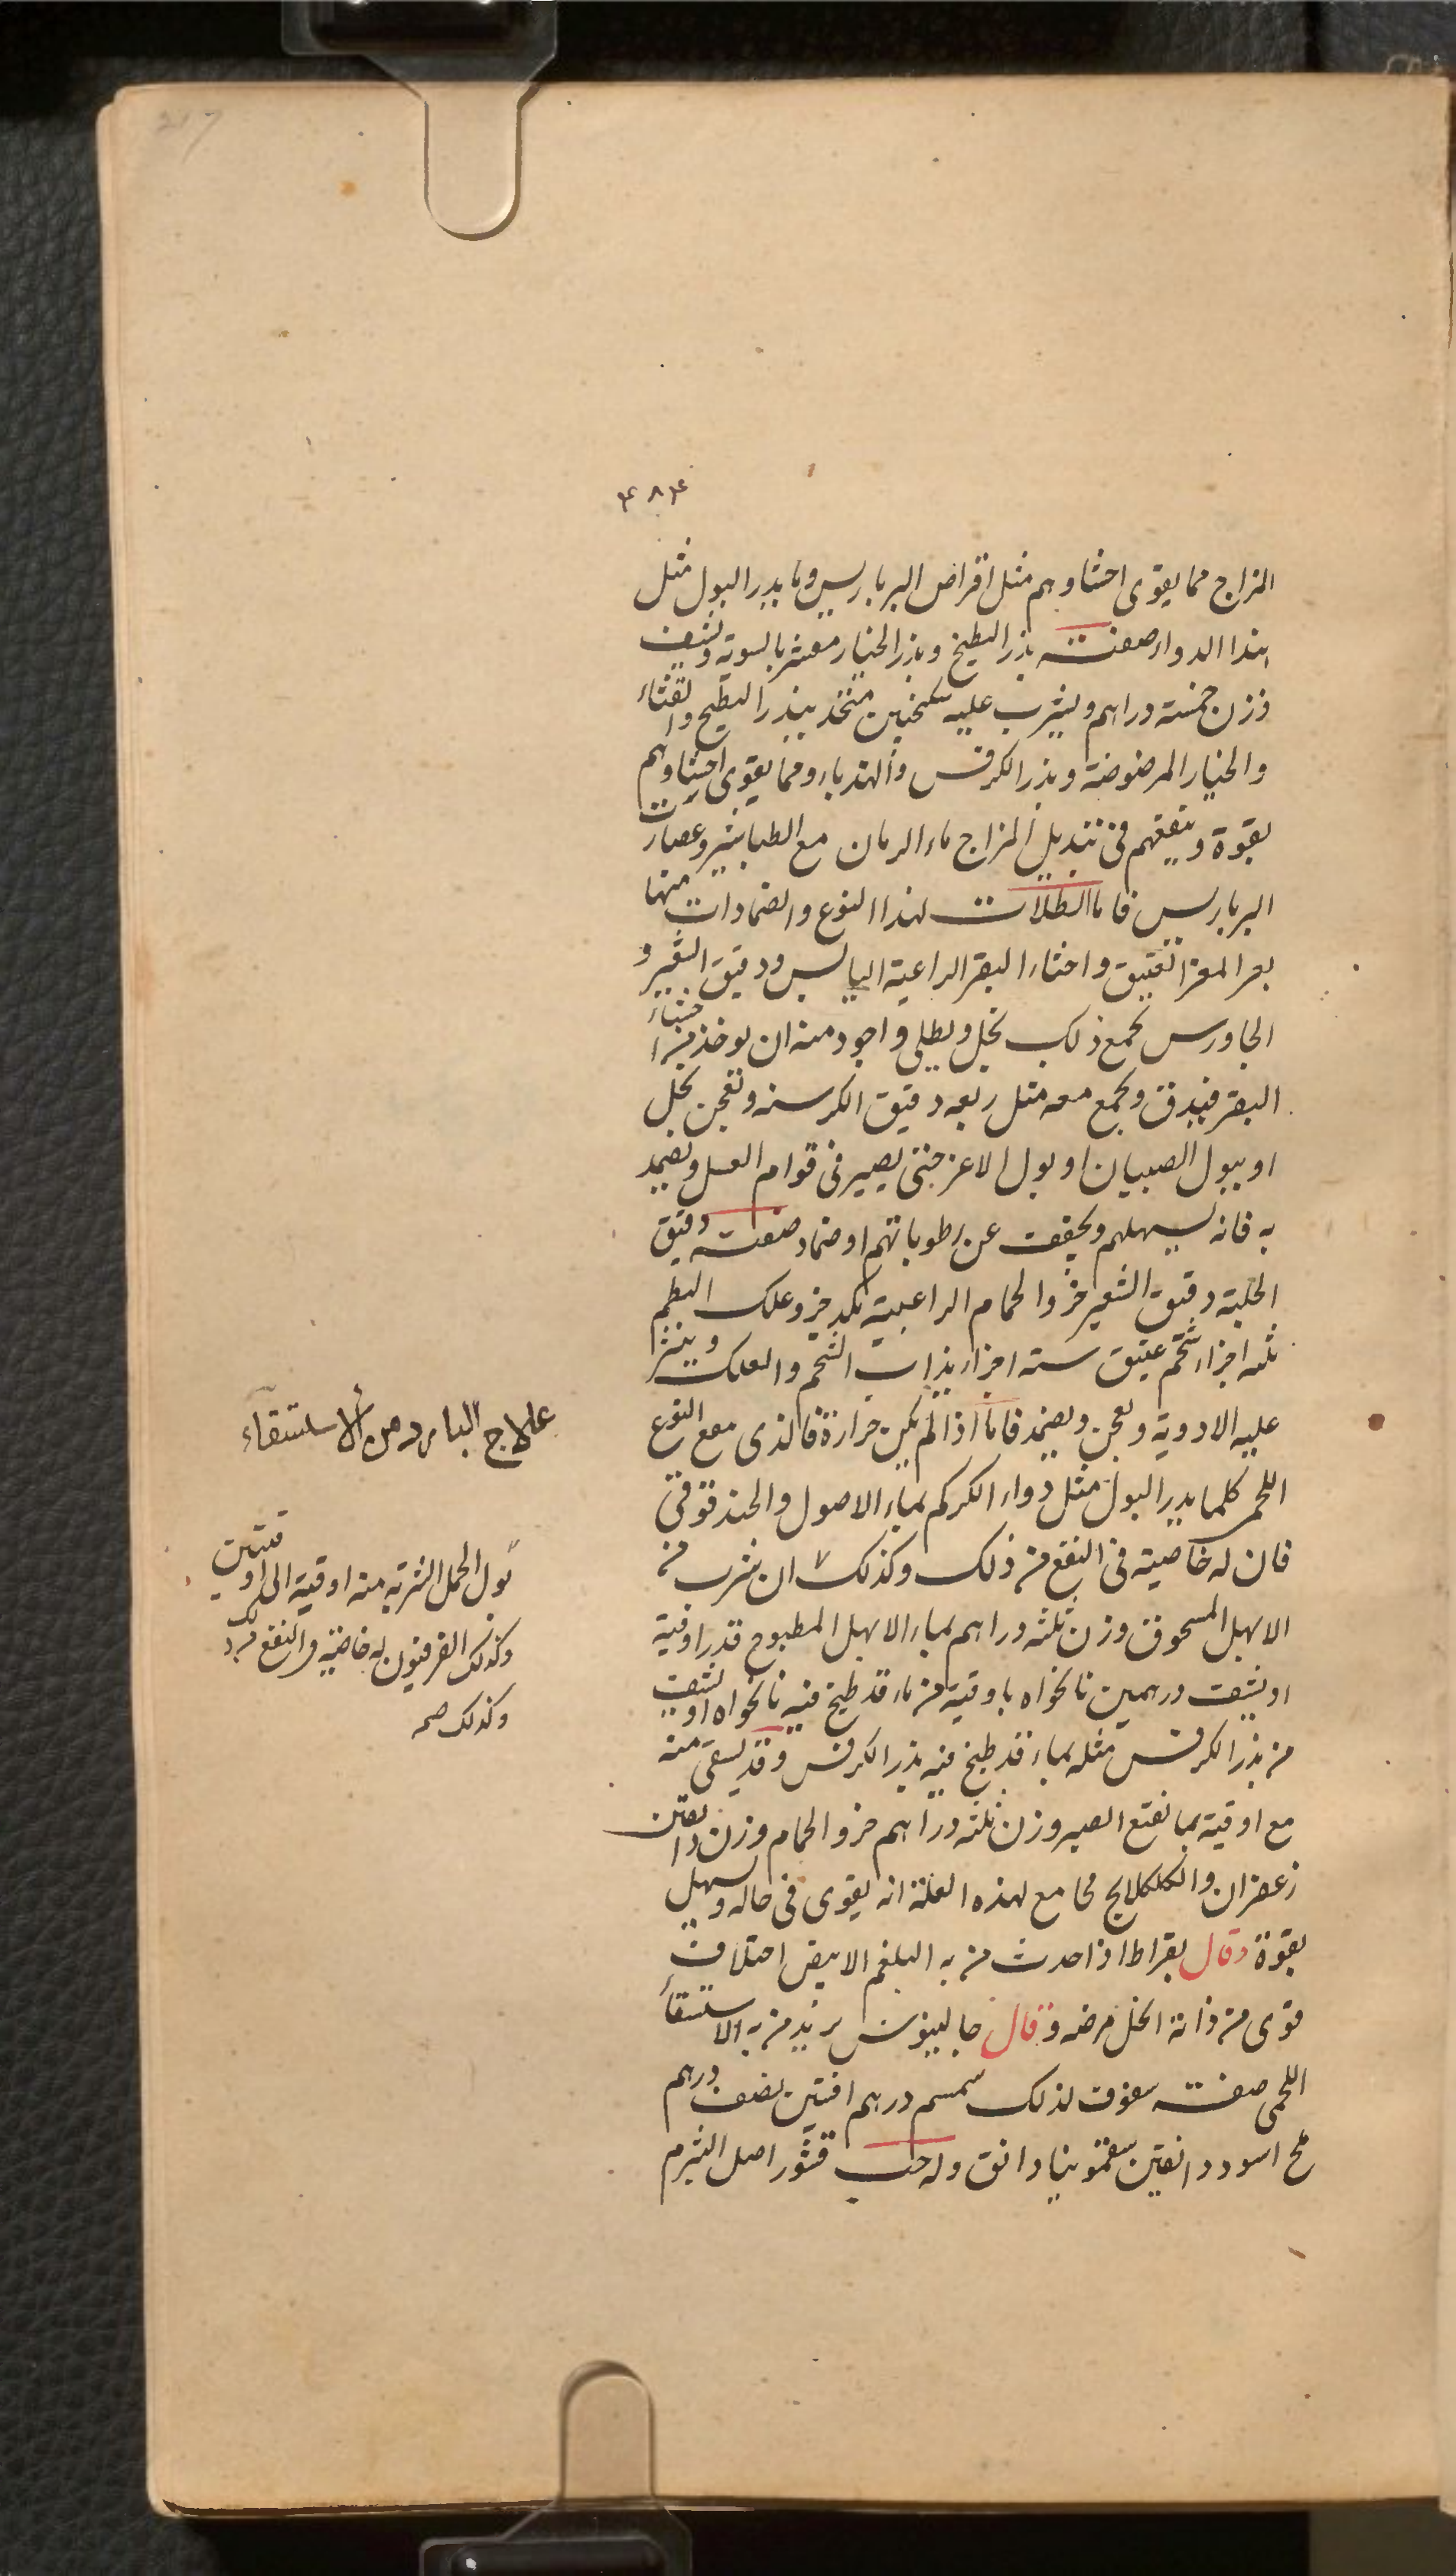 217
٤٨٤
المزاج مما يقوى احشاوهم مثل اقراض البرباريس وما يدر البول مثل
هذا الدواء صفته بزر البطيخ وبزر الخيار مقشر بالسوية ويسف
وزن خمسة دراهم ويشرب عليه سكنجبين متخذ ببذر البطيخ والقثاء
والخيار المرضوضة وبذر الكرفس والهندباء ومما يقوى احشاوهم
بقوة وينفعهم فى تبديل المزاج ماء الرمان مع الطباشير وعصارت
البرباريس فاما الطلات لهذا النوع والضمادات منها
بعر المعز العتيق واخثاء البقر الراعية اليابس ودقيق الشعير و
الجاورس يجمع ذلك بخل ويطلى واجود منه ان يوخذ من اخثاء
البقر فيدق ويجمع معه مثل ربعه دقيق الكرسنه وتعجن بخل
او ببول الصبيان او بول الاعز حتى يصير فى قوام العسل ويضمد
به فانه يسهلهم ويجفف عن رطوباتهم او ضماد صفته دقيق
الحلبة دقيق الشعير خرو الحمام الراعبية بكد جز وعلك البطم
ثلثه اجزاء شحم عتيق سته اجزاء يذاب الشحم والعلك وينثر
عليه الادوية ويعجن ويضمد فاما اذا لم يكن حرارة فالذى مع النوع
اللحمى كلما يدر البول مثل دواء الكركم بماء الاصول والحندقوقى
فان له خاصية فى النفع من ذلك وكذلك ان شرب من
الابهل المسحوق وزن ثلثه دراهم بماء الابهل المطبوح قدر اوقية
او يسف درهمين نانخواه باوقية من ماء قد طبخ فيه نانخواه او يسف
من بذر الكرفس مثله بماء قد طبخ فيه بذر الكرفس وقد يسقى منه
مع اوقية بما نقع الصبر وزن ثلثه دراهم خرو الحمام وزن دانقين
زعفران والكلكلانج مجامع لهذه العلة انه يقوى فى حاله ويسهل
بقوة وقال بقراط اذا حدث من به البلغم الابيض اختلاف
قوى من ذاته انحل مرضه وقال جالينوس يريد من به الاستسقاء
اللحمى صفته سفوف لذلك سمسم درهم افتين نصف درهم
ملح اسود دانقين سقمونيا دانق وله حب قشور اصل الشبرم
علاج البارد من الاستسقاء
بول الجمل الشربة منه اوقية الى اوقيتين
وكذلك الفرفيون له خاصية فى النفع من ذلك
وكذلك صح